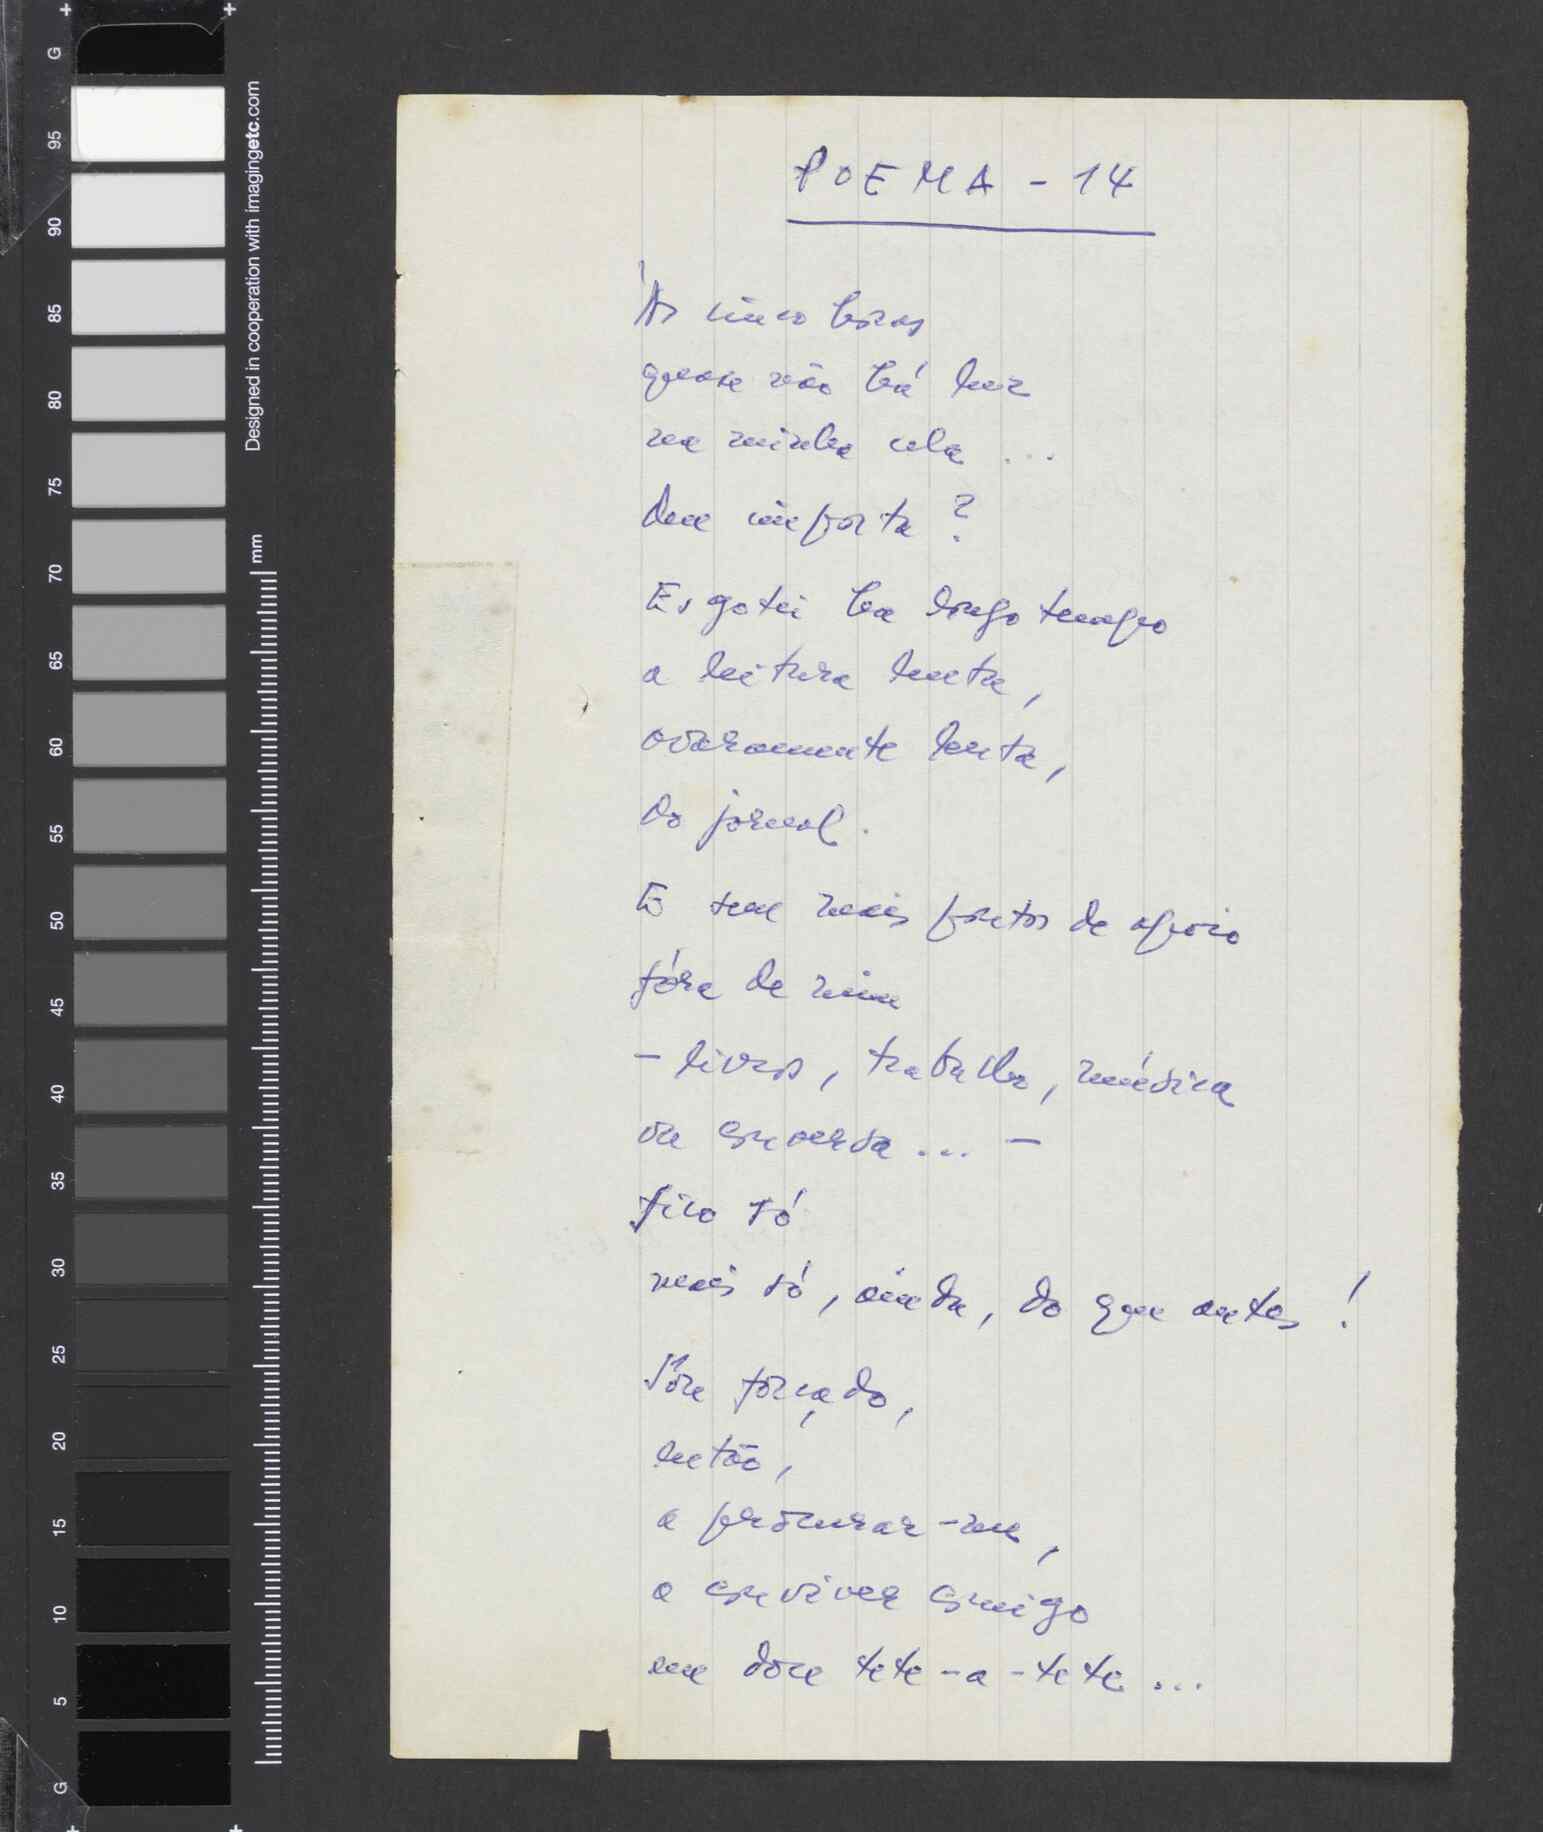 G
95
90
85
80
75
70
65
60
55
50
45
40
35
30
25
20
15
10
5
G
Designed in cooperation with imagingetc.com
mm
POEMA - 14
Às cinco horas
quase não há luz
na minha cela ...
Que importa?
Esgotei ha longo tempo
a leitura lenta,
avaramente lenta,
do jornal.
E sem mais pontos de apoio
fóra de mim
- livros, trabalho, música
ou conversa ... -
fico só
mais só, ainda, do que antes!
Sou forçado,
então,
a procurar-me,
a conviver comigo
em doce tete-a-tete ...